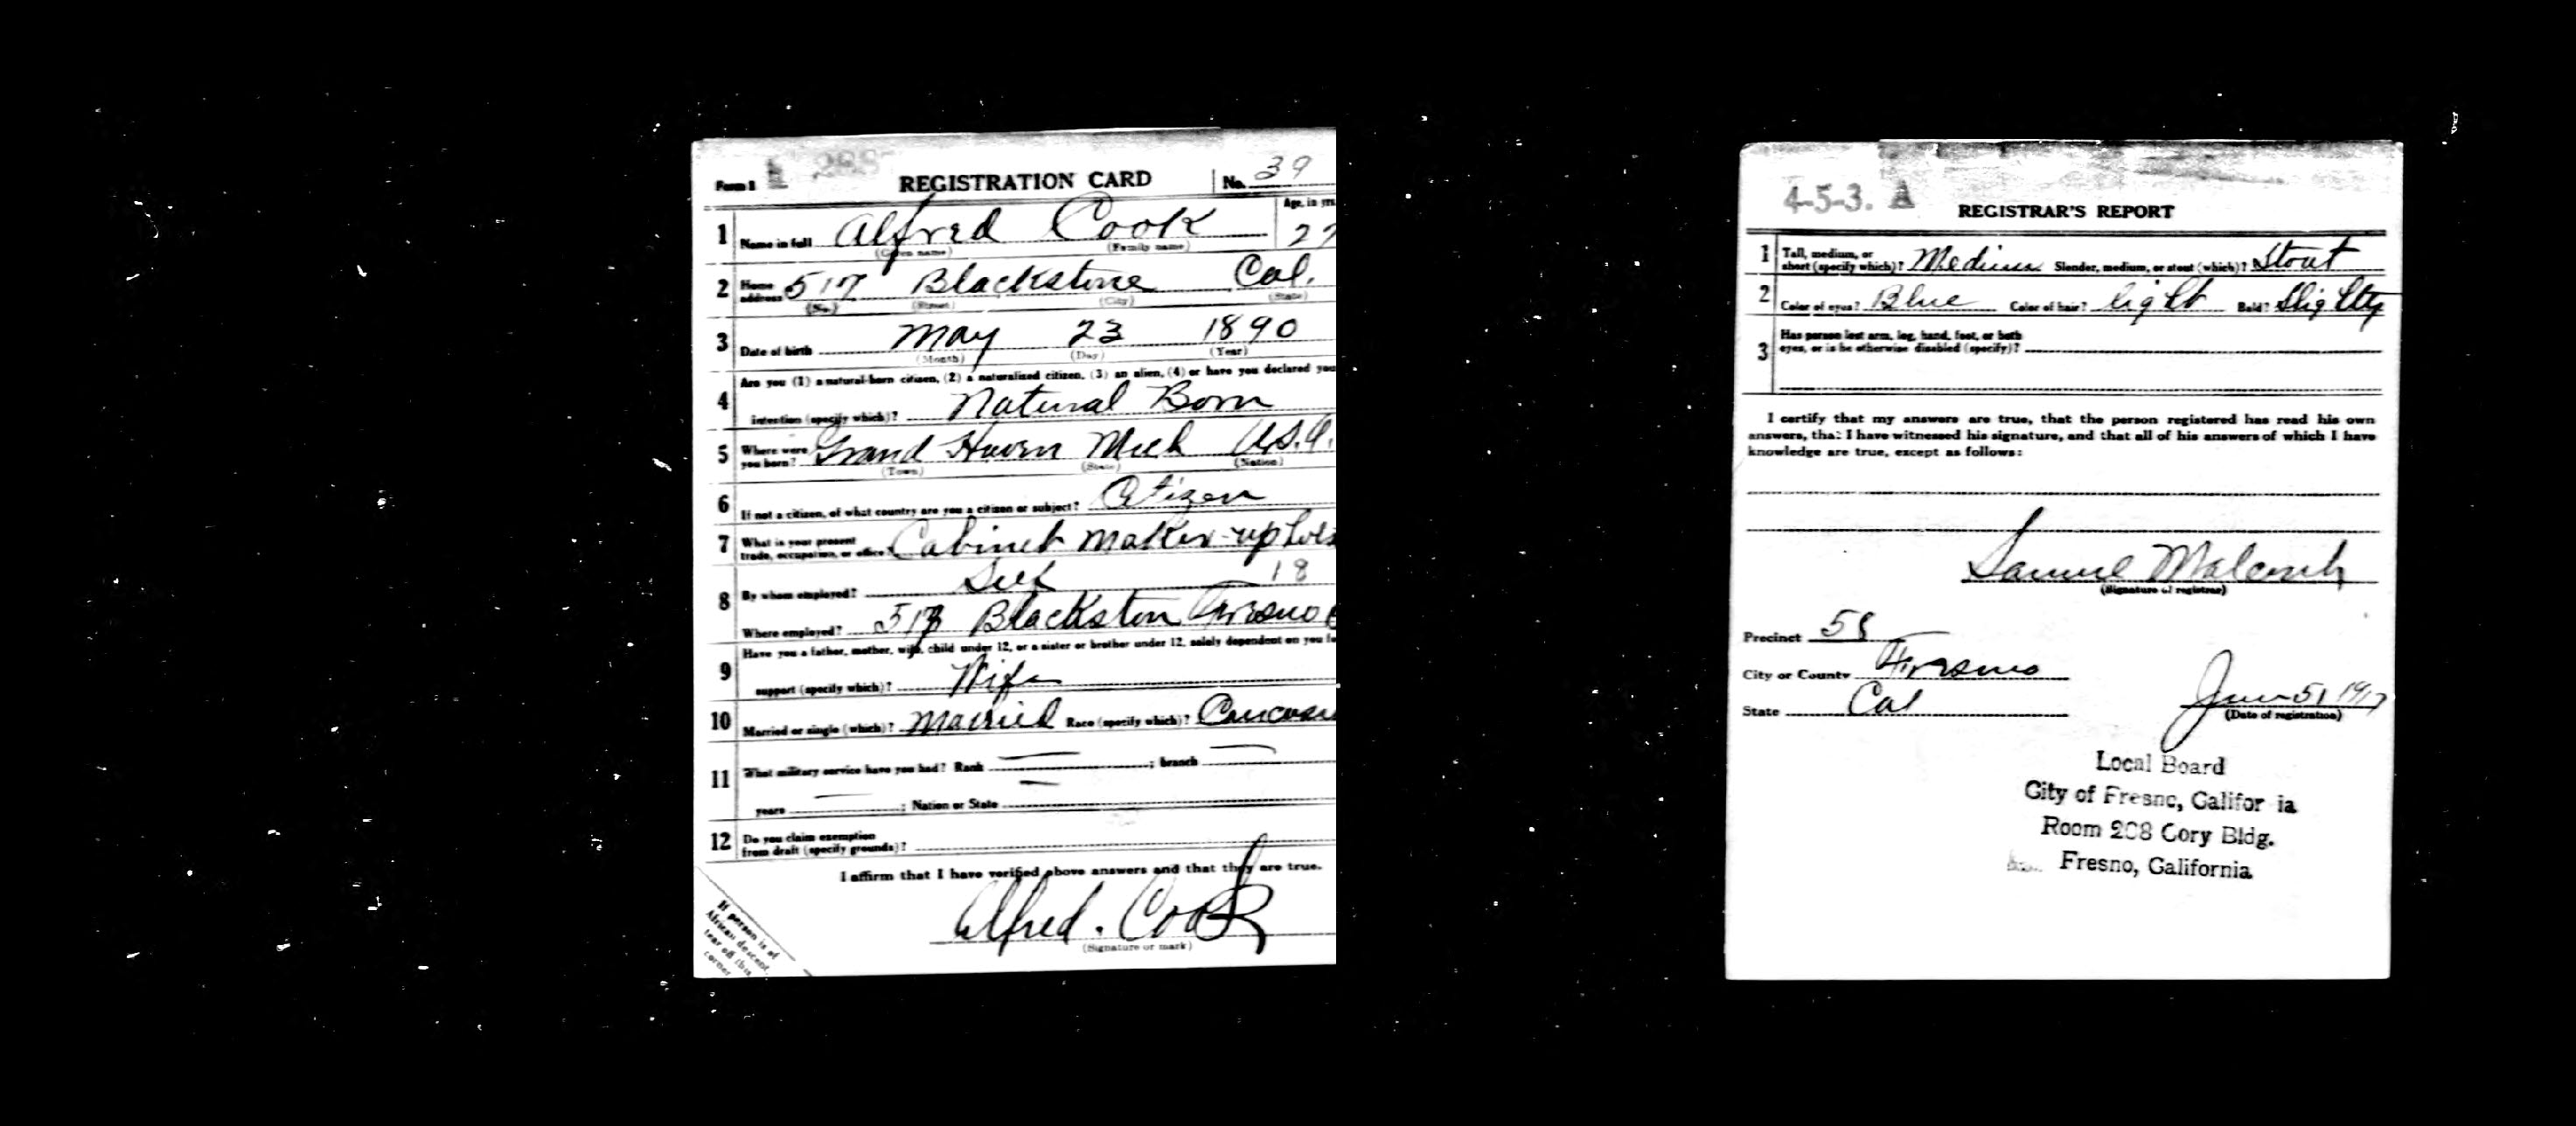 Form 1 285 REGISTRATION CARD No. 39
1 Name in full Alfred Cook Age, in yrs. 27
(Given name) (Family name)
2 Home address 517 Blackstone Cal.
(No.) (Street) (City) (State)
3 Date of birth May 23 1890
(Month) (Day) (Year)
4 Are you (1) a natural-born citizen, (2) a naturalized citizen, (3) an alien, (4) or have you declared you
intention (specify which)? Natural Born
5 Where were you born? Grand Haven Mich U.S.A.
(Town) (State) (Nation)
6 If not a citizen, of what country are you a citizen or subject? Citizen
7 What is your present trade, occupation, or office? Cabinet maker-uphols
8 By whom employed? Self 18
Where employed? 517 Blackston Fresno
9 Have you a father, mother, wife, child under 12, or a sister or brother under 12, solely dependent on you fo
support (specify which)? Wife
10 Married or single (which)? Married Race (specify which)? Caucasi
11 What military service have you had? Rank — ; branch —
years — ; Nation or State —
12 Do you claim exemption from draft (specify grounds)?
I affirm that I have verified above answers and that they are true.
Alfred. Cook
(Signature or mark)
If person is of
African descent,
tear off this
corner
4-5-3. A
REGISTRAR'S REPORT
1 Tall, medium, or short (specify which)? Medium Slender, medium, or stout (which)? Stout
2 Color of eyes? Blue Color of hair? light Bald? Slightly
3 Has person lost arm, leg, hand, foot, or both
eyes, or is he otherwise disabled (specify)?
I certify that my answers are true, that the person registered has read his own
answers, that I have witnessed his signature, and that all of his answers of which I have
knowledge are true, except as follows:
Samuel
(Signature of registrar)
Precinct 58
City or County Fresno
State Cal
June 5, 1917
(Date of registration)
Local Board
City of Fresno, Califor ia
Room 208 Cory Bldg.
Fresno, California